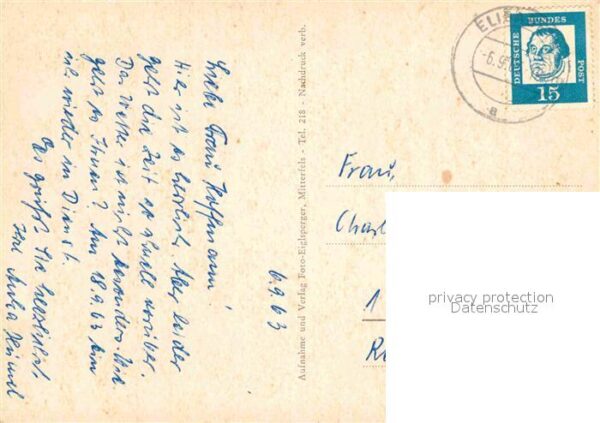 6.9.63
Liebe Frau Hoffmann!
Hier ist es herrlich. Aber leider
geht die Zeit so schnell vorüber.
Das Wetter ist nicht besonders. Wie
geht es Ihnen? Am 18.9.63 bin
ich wieder in Dienst.
Es grüßt Sie herzlichst
Ihre
Aufnahme und Verlag Foto-Eiglsperger, Mitterfels - Tel. 218 - Nachdruck verb.
-6.9.
a
DEUTSCHE
BUNDES
POST
15
Frau,
Charl
1
privacy protection
Datenschutz